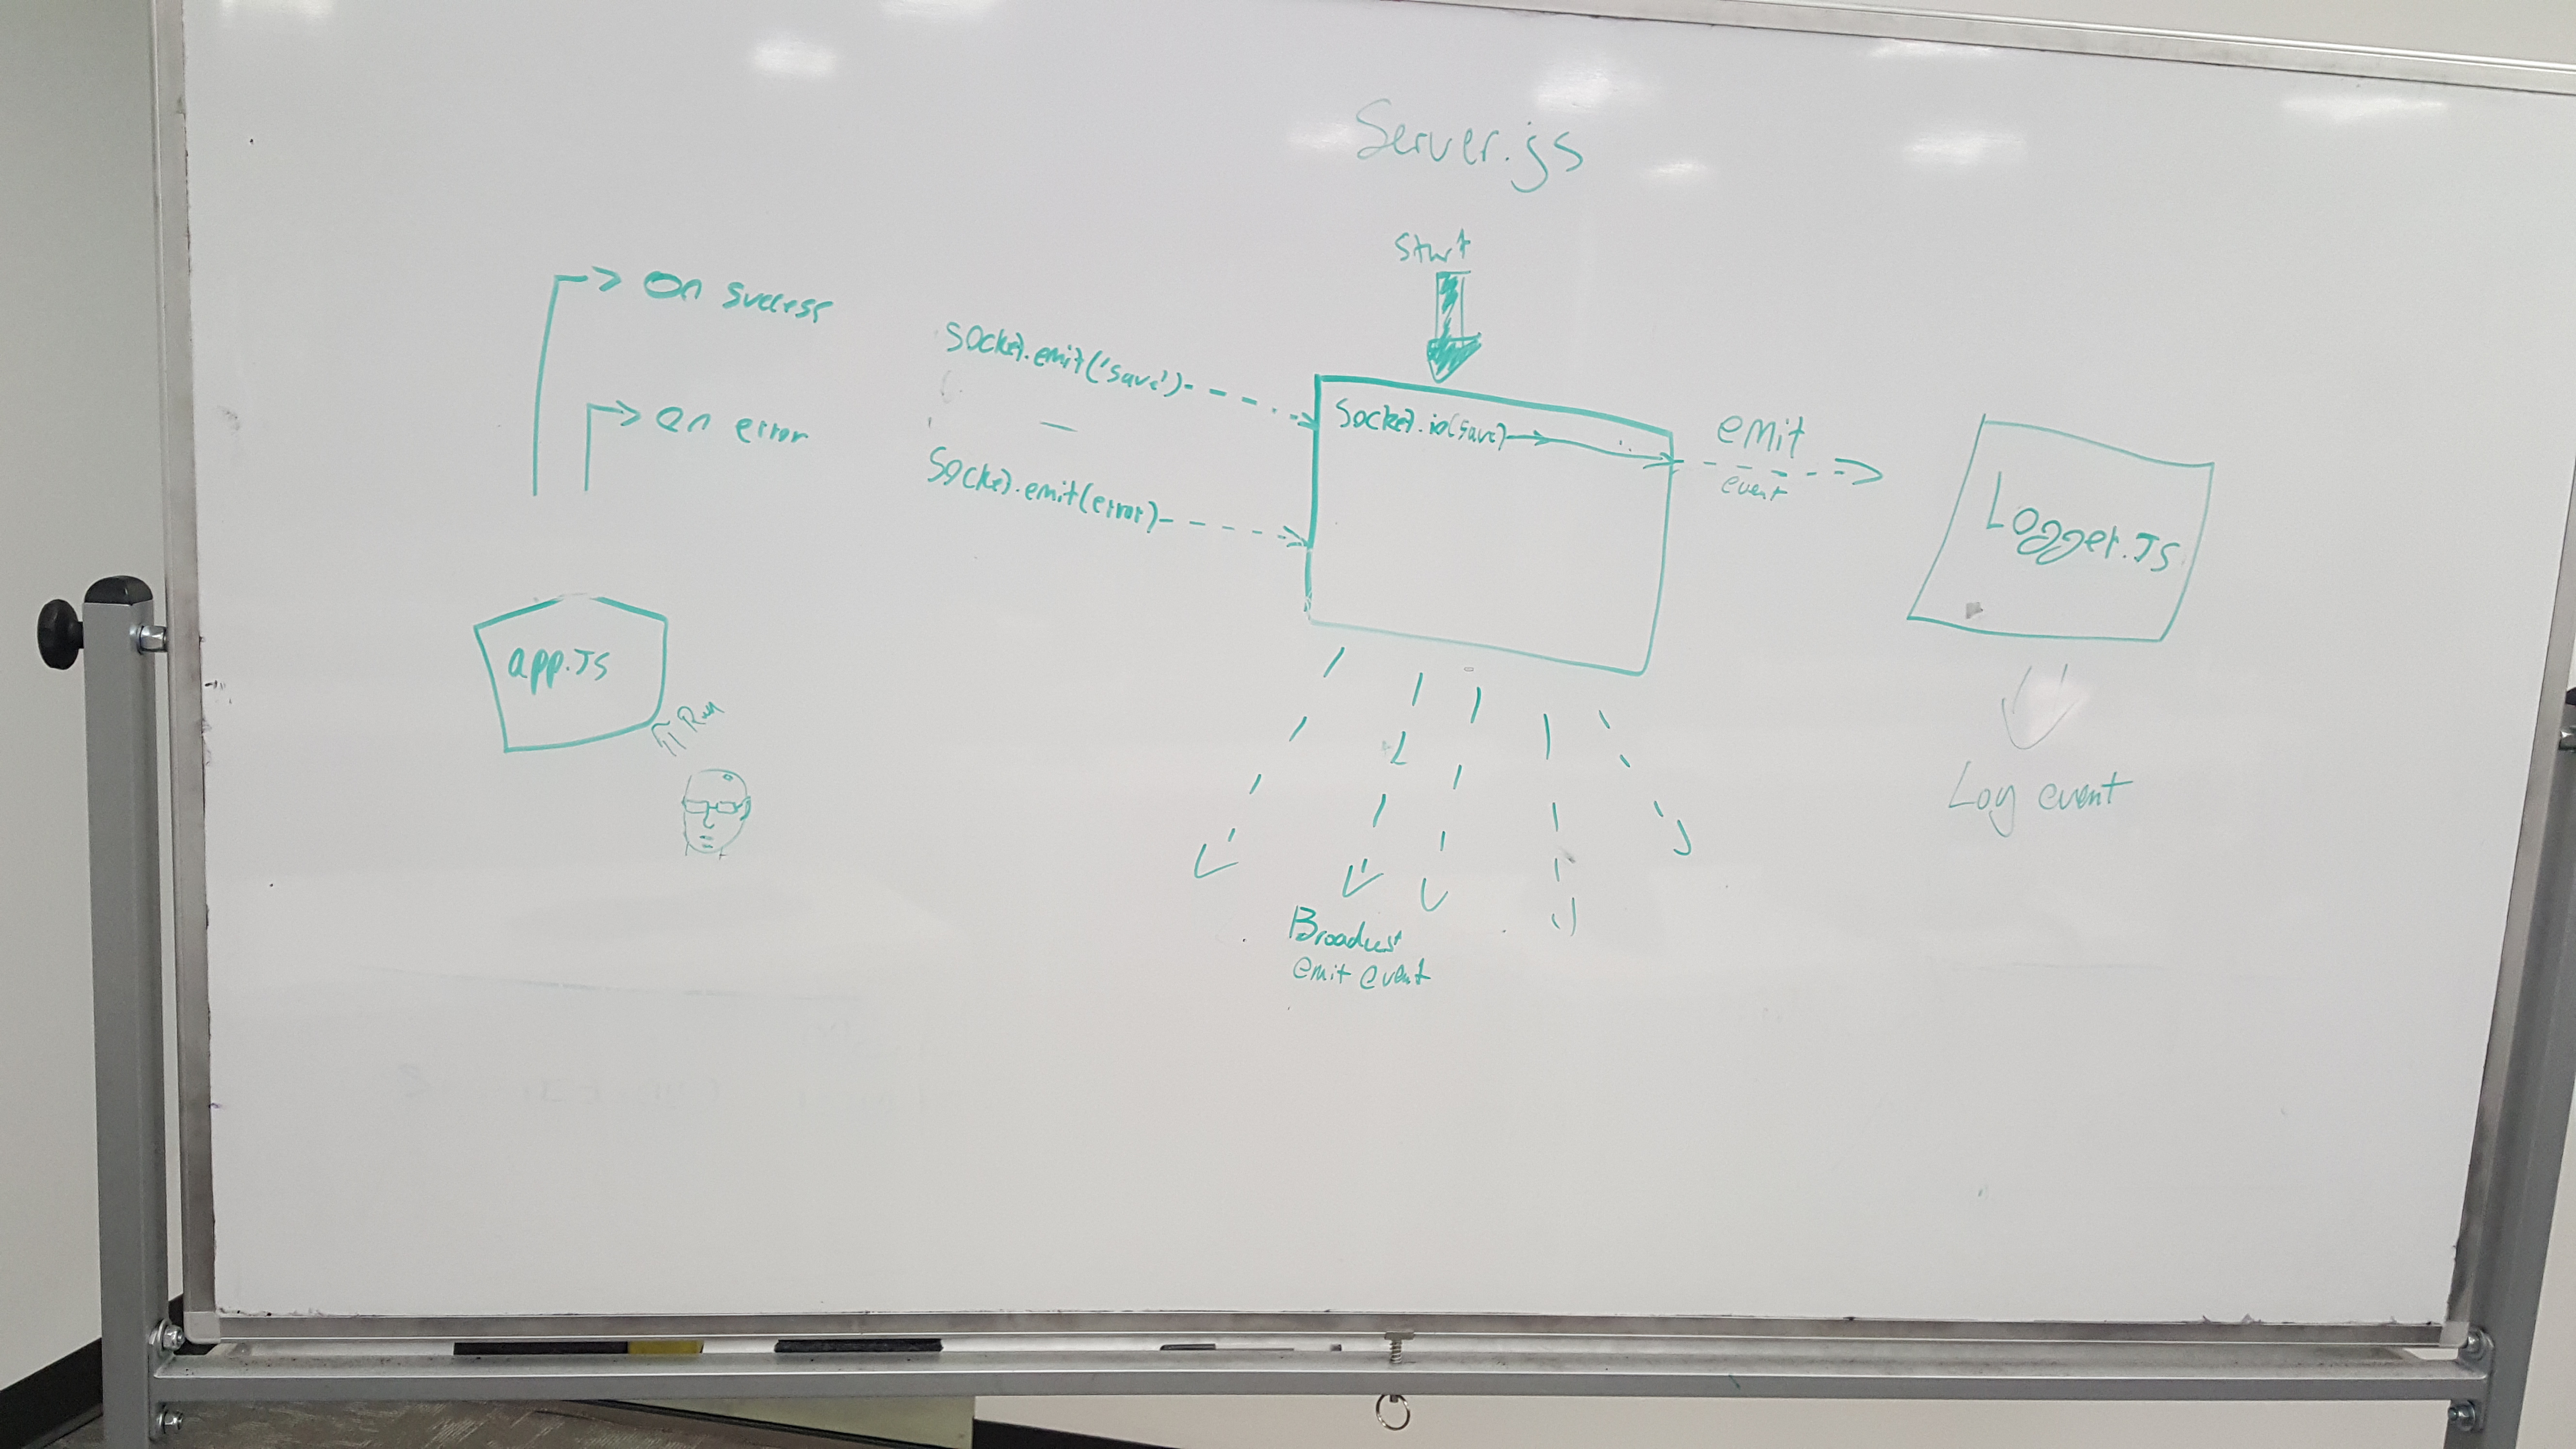 Server.js
Start
On success
On error
socket.emit('save')
Socket.emit(error)
Socket.io(save)
emit
event
Logger.Js
app.Js
Run
Log event
Broadcast
emit event